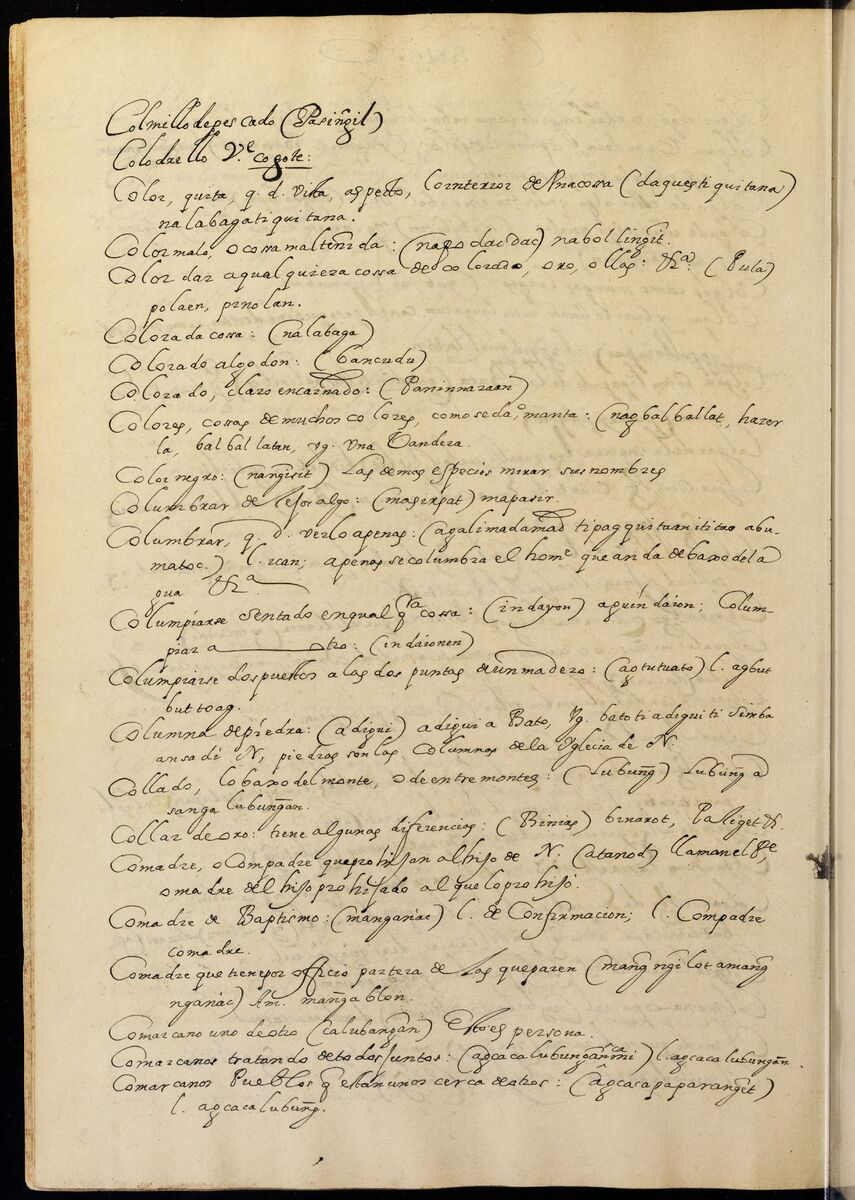 Colmillo de pescado (Pasin͠gil)
Colodrello V.e cogote:
Color, quita, q. d. vista, aspecto, lo interior de Vna cossa (daguesti quitana)
na labaga ti quitana.
Color malo, o cossa mal tenida: (nagodacdac) nabollin͠git.
Color dar a qual quiera cossa de colorado, oro, ollas: &.a: (Pula)
polaen, pinolan.
Colorada cossa: (nalabaga)
Colorado algodon: (bancudu)
Colorado, claro encarnado: (Paninnaraan)
Colores, cossas de muchos colores, como seda, o manta: (nag balballat, hazer
la, balballatan, vg. Vna Vandera.
Color negro: (nan͠gisit) Las demas especies mirar sus nombres
Columbrar de lejos algo: (masirpat) mapasir.
Columbrar, q. d. verlo apenas: (agalimadamad ti pagquitaan iti tao abu-
matoc.) l. ican; apenas se columbra el home que anda debaxo del a
gua &.a
Columpiarse sentado en qual q.ra cossa: (indayon) aguindaion; Colum-
piar a otro: (indaionen)
Columpiarse dos puestos a las dos puntas de un madero: (agtutuato) l. agbut
buttoag.
Columna de piedra: (adigui) adigui a Bato, Vg. bato ti adigui ti Simba
ansa di N, piedras son las Columnas de la Yglecia de N.
Collado, lo baxo del monte, o de entre montes: (Lubun͠g) Lubun͠g a
sanga lubun͠gan.
Collar de oro: tiene algunas diferencias: (Bintas) binarot, Paliget &.
Comadre, o Compadre que prohijan al hijo de N. (atanod) llaman el Pe,
o madre del hijo prohijado al que lo prohijo.
Comadre de Baptismo: (manganac) l. de Confirmacion; l. Compadre
comadre.
Comadre que tiene por officio partera de las que paren (man͠gn͠gilot aman͠g
nganac) Am. man͠gablon.
Comarcano uno de otro (calubun͠gan) Esto es persona.
Comarcanos tratando de todos juntos: (agcacalubun͠gan͠mi) l. agcacalubun͠gan.
Comarcanos Pueblos q estan unos cerca de otros: (agcacapaparan͠get)
l. agcacalubun͠g.